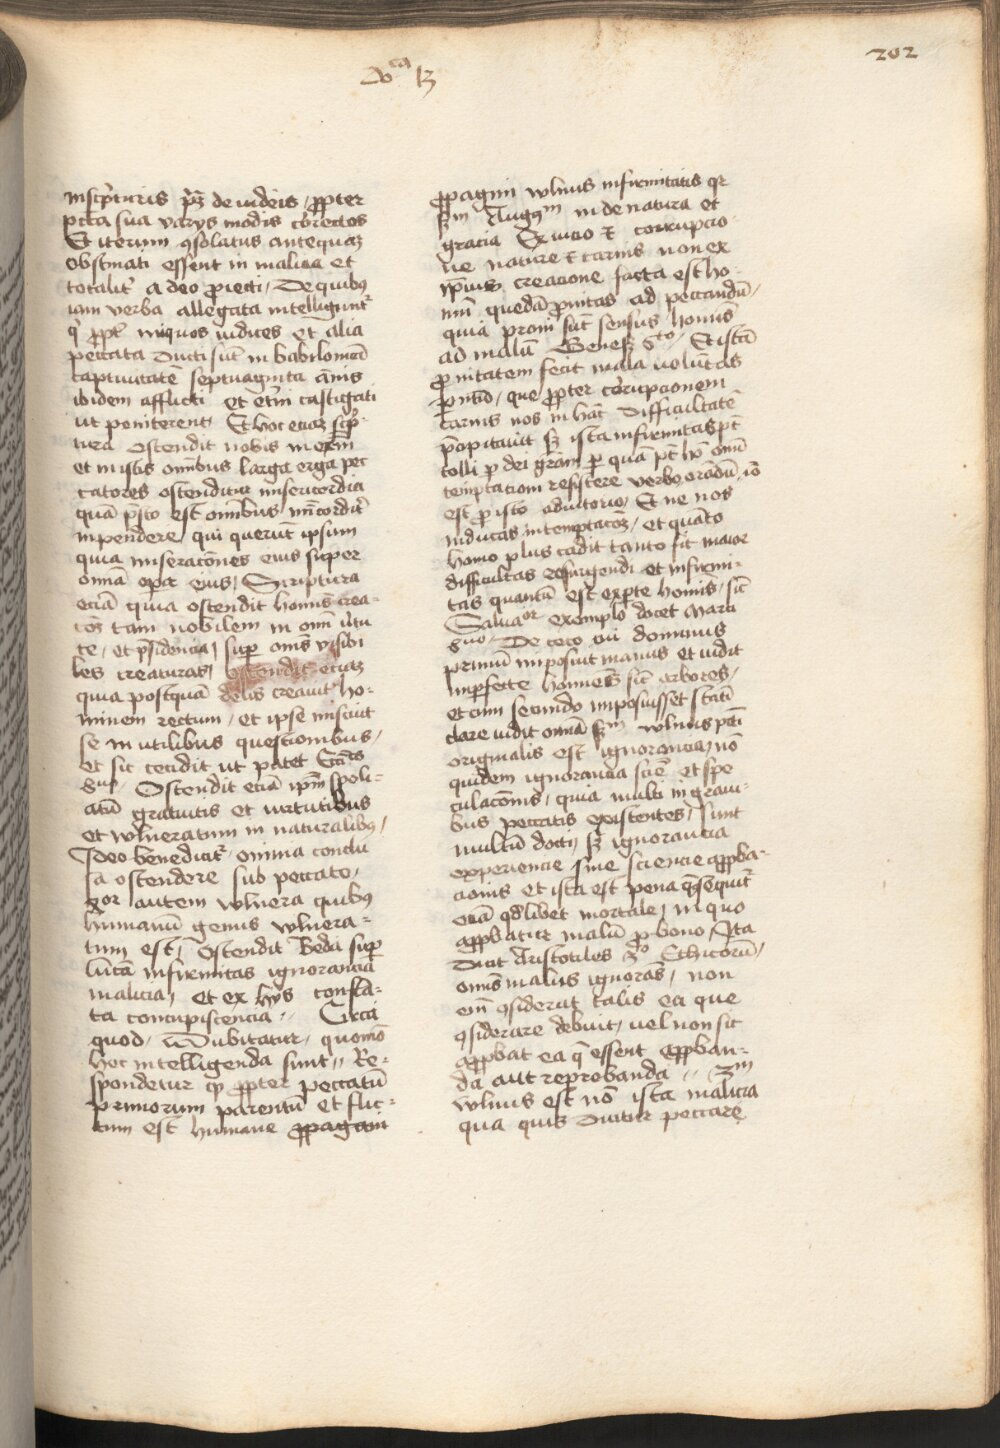 202
in scripturis patet de iudeis / propter
peccata sua varys modis correctos
Et iterum consolatus antequam
obstinati essent in malicia et
totaliter a deo proiecti / De quibus
iam verba allegata intelliguntur
propter iniquos iudices et alia
peccata ducti sunt in babiloniam
captiuitatem septuaginta annis
ibidem afflicti et etiam castigati
ut peniterent Et hoc eciam scrip-
tura ostendit nobis in
et in istis omnibus larga erga pec
catores ostenditur misericordia
quam presto est omnibus misericorditer
inpendere / qui querunt ipsum
quia miseraciones eius super
omnia opera eius / Scriptura
eciam quia ostendit hominem crea-
tum tam nobilem in omni virtu
te / et presidencia / super omnes visibi
les creaturas / ostendit eciam
quia postquam deus creauit ho-
minem rectum / et ipse miscuit
se in utilibus questionibus /
et sic cecidit ut patet
Ostendit eciam ipsum spoli-
atum gratuitis et virtutibus
et wlneratum in naturalibus /
Ideo benedicitur omnia conclu
sa ostendere sub peccato /
autem wlnera quibus
humanum genus wlnera-
tum est / Ostendit Beda super
lucam infirmitas ignorancia
malicia / et ex hys confla-
ta concupiscencia // Circa
quod / Dubitatur / quomodo
hoc intelligenda sunt // Re-
spondetur quod propter peccatum
primorum parentum et flic-
tum est humane propagini
propagini wlnus infirmitatis
secundum Augustinum in de natura et
gracia Ex vicio et corrupcio
ne nature et carnis non ex
ipsius creacione facta est ho-
mini quedam pronitas ad peccandum /
quia proni sunt sensus hominis
ad malum Genes 8to / Et istam
pronitatem fecit mala uoluntas
que propter corrupcionem
carnis nos in hanc difficultatem
precipitauit sed ista infirmitas potest
tolli per dei graciam per quam potest homo omni
temptacioni resistere verbo orandum
est pro isto adiutorio / Et ne nos
inducas in temptacionem / et quanto
homo plus cadit tanto fit maior
difficultas resurgendi et infirmi-
tas quantum est ex parte hominis / sicut
Saluator exemplo docet Marci
8uo / De ceco cui dominus
primum imposuit manus et uidit
inperfecte homines sicut arbores /
et cum secundo imposuisset statim
clare uidit omnia secundum wlnus peccati
originalis est ignorancia / non
quidem ignorancia sciencie et spe
culacionis / quia multi in graui-
bus peccatis existentes / sunt
multum docti / sed ignorancia
experiencie siue sciencie approba-
cionis et ista est pena consequitur
eciam quodlibet mortale / in quo
approbatur malum pro bono / Ita
Dicit Aristotiles 3o Ethicorum /
omnis malus ignorans / non
enim considerat talis ea que
considerare debuit / uel non sic
approbat ea que essent approban-
da aut reprobanda // 3m
wlnus est non ista malicia
qua quis dicitur peccare